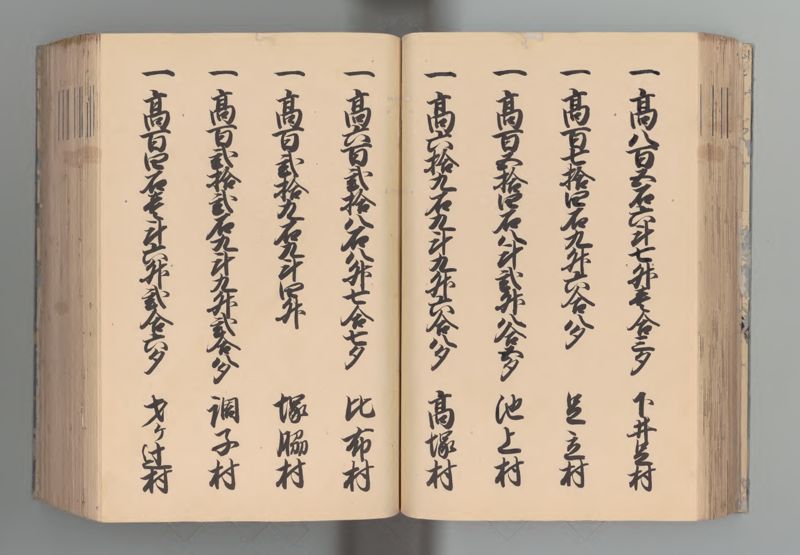 一高八百五石六斗七升壱合三夕 下井足村
一高百七拾四石九升六合八夕 足立村
一高百五拾四石八斗弐升八合五夕 池上村
一高六拾九石九斗九升六合八夕 高塚村
一高六百弐拾八石八升七合七夕 比布村
一高百弐拾九石九斗四升 塚脇村
一高百弐拾弐石九斗九升弐合八夕 調子村
一高百四石壱斗六升弐合六夕 才ヶ辻村